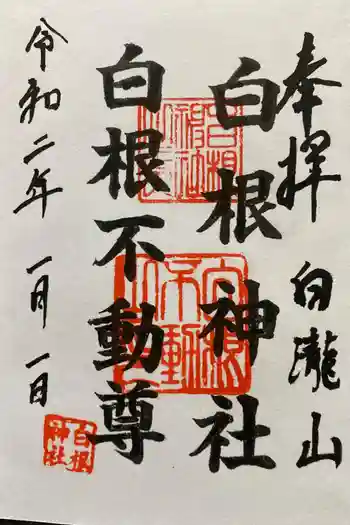 奉拝 白瀧山
白根神社
白根不動尊
令和二年 一月一日
白根
神社